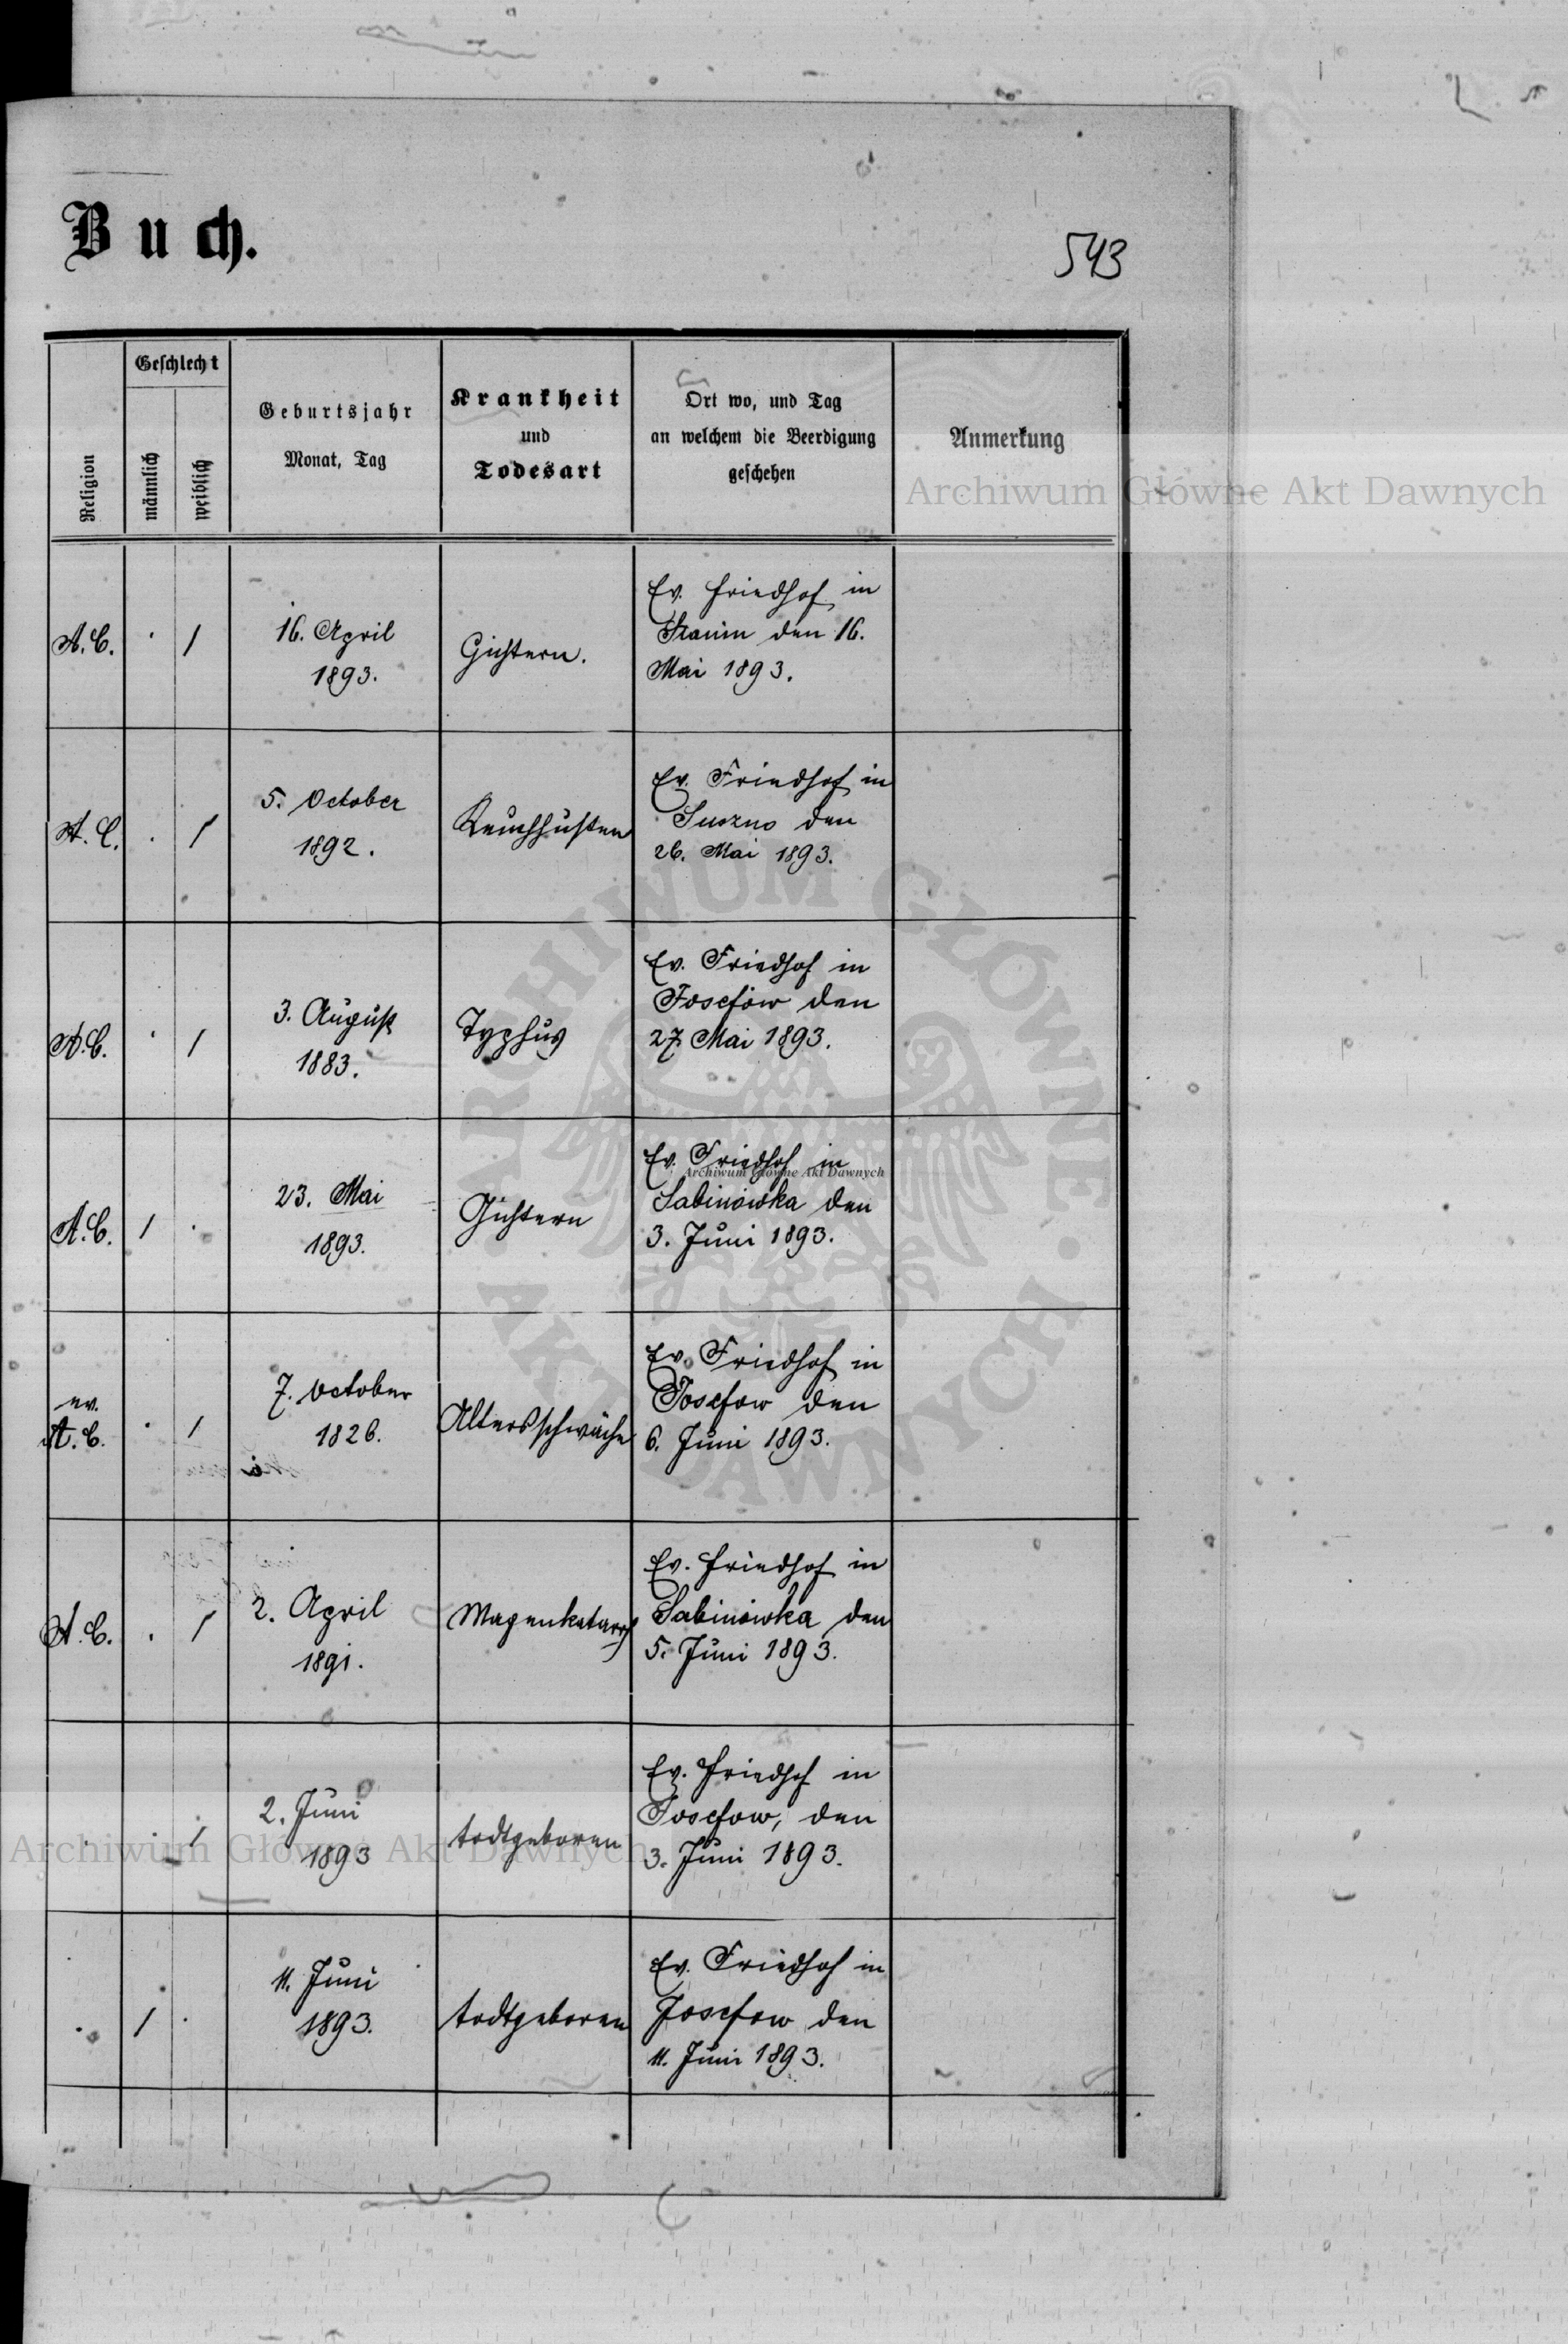 Buch.
543
Religion
Geschlecht
männlich
weiblich
Geburtsjahr
Monat, Tag
Krankheit
und
Todesart
Ort wo, und Tag
an welchem die Beerdigung
geschehen
Anmerkung
Archiwum Główne Akt Dawnych
A. C. 1
16. April
1893.
Gichtern.
Ev. Friedhof in
den 16.
Mai 1893.
A. C. 1
5. October
1892.
Keuchhusten
Ev. Friedhof in
Suszno den
26. Mai 1893.
A. C. 1
3. August
1883.
Typhus
Ev. Friedhof in
Josefów den
27. Mai 1893.
A. C. 1
23. Mai
1893.
Gichtern
Ev. Friedhof in
Sabinówka den
3. Juni 1893.
Archiwum Główne Akt Dawnych
ev.
A. C. 1
7. October
1826.
Altersschwäche
Ev. Friedhof in
Josefow den
6. Juni 1893.
A. C. 1
2. April
1891.
Magenkatarrh
Ev. Friedhof in
Sabinówka den
5. Juni 1893.
1
2. Juni
1893
todtgeboren
Ev. Friedhof in
Josefow, den
3. Juni 1893.
Archiwum Główne Akt Dawnych
1
11. Juni
1893.
todtgeboren
Ev. Friedhof in
Josefow den
11. Juni 1893.
ARCHIWUM GŁÓWNE
AKT DAWNYCH